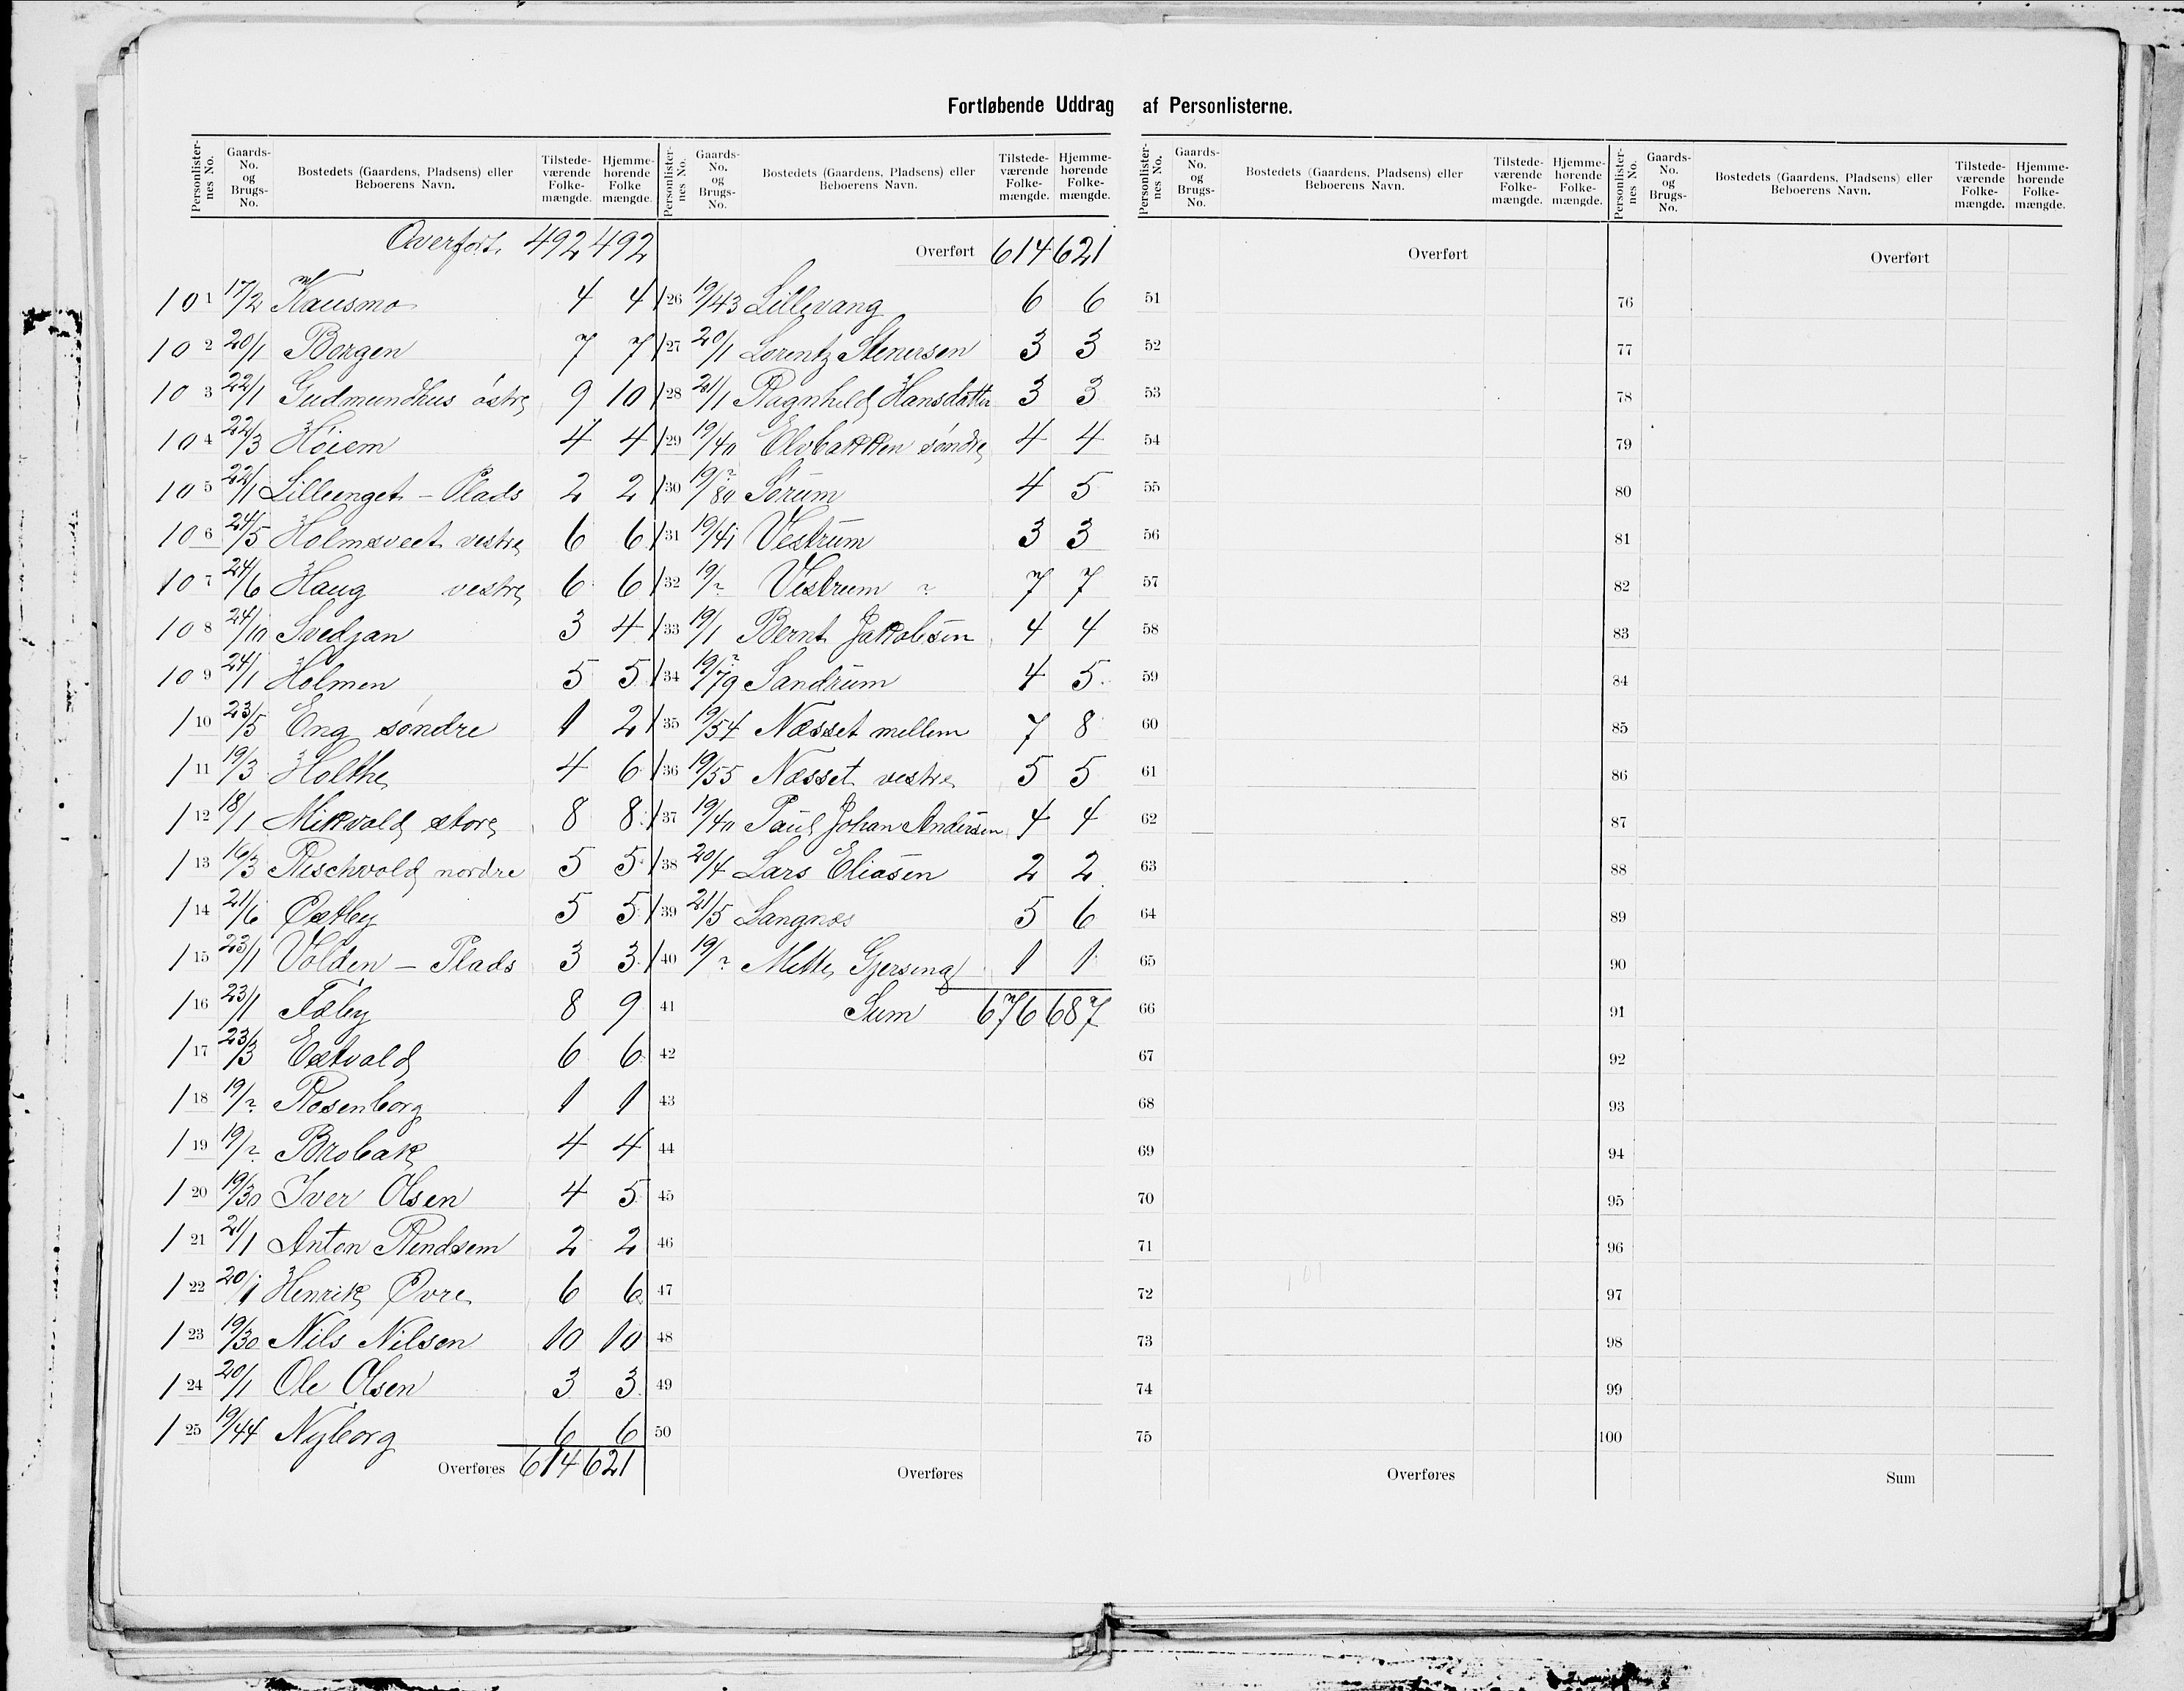 Fortløbende Uddrag af Personlisterne.
Personlisternes No. Gaards-No. og Brugs-No. Bostedets (Gaardens, Pladsens) eller Beboerens Navn. Tilstedeværende Folkemængde. Hjemmehørende Folkemængde.
Overført. 492 492
101 17/2 Kausmo 4 4
102 20/1 Borgen 7 7
103 22/1 Gudmundhus østre 9 10
104 22/3 Høiem 4 4
105 22/1 Lilleenget - Plads 2 2
106 24/5 Holmsveet vestre 6 6
107 24/6 Haug vestre 6 6
108 24/10 Svedjan 3 4
109 24/1 Holmen 5 5
110 23/5 Eng søndre 1 2
111 19/3 Holthe 4 6
112 18/1 Mikvold store 8 8
113 16/3 Rischvold nordre 5 5
114 21/6 Østby 5 5
115 23/1 Volden - Plads 3 3
116 23/1 Fæby 8 9
117 23/3 Estvald 6 6
118 19/? Rosenborg 1 1
119 19/? Brobak 4 4
120 19/30 Iver Olsen 4 5
121 21/1 Anton Rendsem 2 2
122 20/1 Henrik Øvre 6 6
123 19/30 Nils Nilsen 10 10
124 20/1 Ole Olsen 3 3
125 19/44 Nyborg 6 6
Overføres 614 621
Personlisternes No. Gaards-No. og Brugs-No. Bostedets (Gaardens, Pladsens) eller Beboerens Navn. Tilstedeværende Folkemængde. Hjemmehørende Folkemængde.
Overført 614 621
126 19/43 Lillevang 6 6
127 20/1 Lorentz Stenersen 3 3
128 21/1 Ragnhild Hansdatter 3 3
129 19/40 Elvbakken søndre 4 4
130 19/80 ? Sørum 4 5
131 19/41 Vestrum 3 3
132 19/? Vestrum ? 7 7
133 19/1 Bernt Jakobsen 4 4
134 19/79 ? Sandrum 4 5
135 19/54 Næsset mellem 7 8
136 19/55 Næsset vestre 5 5
137 19/40 Paul Johan Andersen 4 4
138 20/4 Lars Eliasen 2 2
139 21/5 Langnæs 5 6
140 19/? Mette Gjersing 1 1
41 Sum 676 687
42
43
44
45
46
47
48
49
50
Overføres
Personlisternes No. Gaards-No. og Brugs-No. Bostedets (Gaardens, Pladsens) eller Beboerens Navn. Tilstedeværende Folkemængde. Hjemmehørende Folkemængde.
Overført
51
52
53
54
55
56
57
58
59
60
61
62
63
64
65
66
67
68
69
70
71
72
73
74
75
Overføres
Personlisternes No. Gaards-No. og Brugs-No. Bostedets (Gaardens, Pladsens) eller Beboerens Navn. Tilstedeværende Folkemængde. Hjemmehørende Folkemængde.
Overført
76
77
78
79
80
81
82
83
84
85
86
87
88
89
90
91
92
93
94
95
96
97
98
99
100
Sum